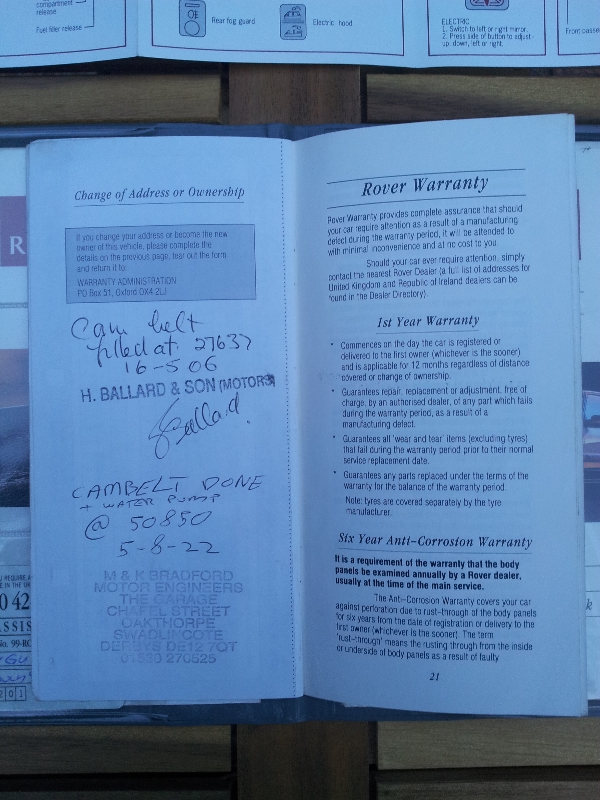 compartment
release
Fuel filler release
Rear fog guard
Electric hood
ELECTRIC
1. Switch to left or right mirror.
2. Press side of button to adjust -
up, down, left or right.
Change of Address or Ownership
If you change your address or become the new
owner of this vehicle, please complete the
details on the previous page, tear out the form
and return it to:
WARRANTY ADMINISTRATION
PO Box 51, Oxford OX4 2LJ
Cam belt
fitted at 27637
16-5 06
H. BALLARD & SON (MOTORS)
Ballard.
CAMBELT DONE
+ WATER PUMP
@ 50850
5-8-22
M & K BRADFORD
MOTOR ENGINEERS
THE GARAGE
CHAPEL STREET
OAKTHORPE
SWADLINCOTE
DERBYS DE12 7QT
01530 270525
Rover Warranty
Rover Warranty provides complete assurance that should
your car require attention as a result of a manufacturing
defect during the warranty period, it will be attended to
with minimal inconvenience and at no cost to you.
Should your car ever require attention, simply
contact the nearest Rover Dealer (a full list of addresses for
United Kingdom and Republic of Ireland dealers can be
found in the Dealer Directory).
1st Year Warranty
• Commences on the day the car is registered or
delivered to the first owner (whichever is the sooner)
and is applicable for 12 months regardless of distance
covered or change of ownership.
• Guarantees repair, replacement or adjustment, free of
charge, by an authorised dealer, of any part which fails
during the warranty period, as a result of a
manufacturing defect.
• Guarantees all 'wear and tear' items (excluding tyres)
that fail during the warranty period prior to their normal
service replacement date.
• Guarantees any parts replaced under the terms of the
warranty for the balance of the warranty period.
Note: tyres are covered separately by the tyre
manufacturer.
Six Year Anti-Corrosion Warranty
It is a requirement of the warranty that the body
panels be examined annually by a Rover dealer,
usually at the time of the main service.
The Anti-Corrosion Warranty covers your car
against perforation due to rust-through of the body panels
for six years from the date of registration or delivery to the
first owner (whichever is the sooner). The term
'rust-through' means the rusting through from the inside
or underside of body panels as a result of faulty
21